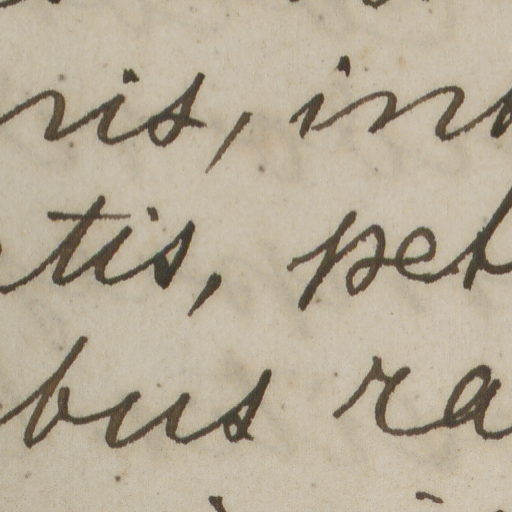 ris, int
tis, pet
bus ra